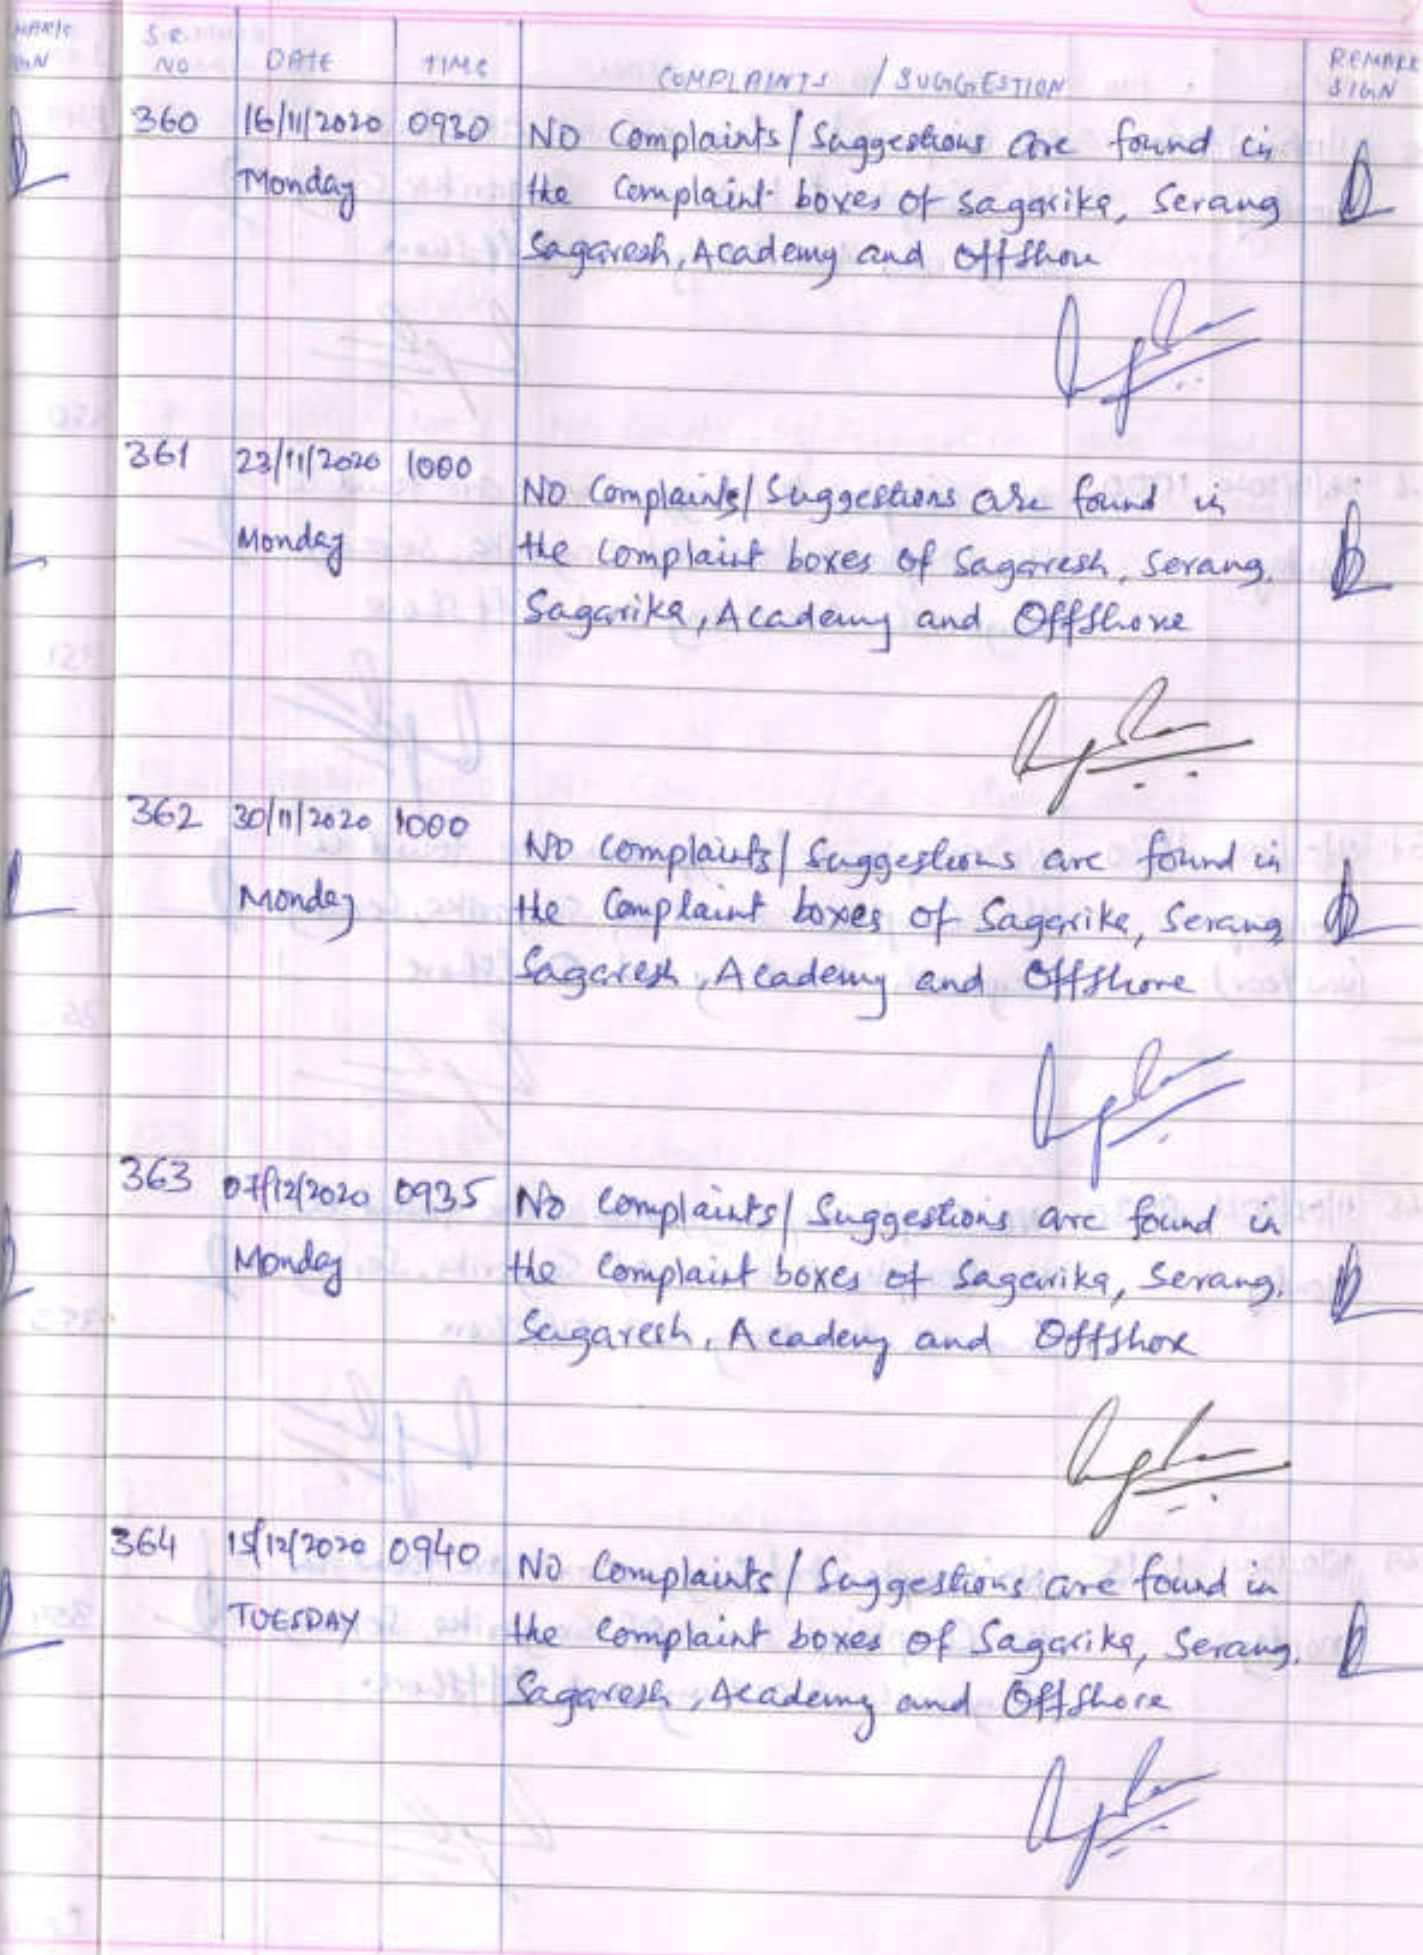 S.R. NO DATE TIME COMPLAINTS / SUGGESTION REMARK SIGN
360 16/11/2020 0930 NO Complaints/Suggestions are found in
Monday the Complaint boxes of Sagarika, Serang
Sagaresh, Academy and Offshore
361 23/11/2020 1000 NO Complaints/Suggestions are found in
Monday the complaint boxes of Sagaresh, Serang,
Sagarika, Academy and Offshore
362 30/11/2020 1000 NO complaints/Suggestions are found in
Monday the Complaint boxes of Sagarika, Serang
Sagaresh, Academy and Offshore
363 07/12/2020 0935 No Complaints/Suggestions are found in
Monday the Complaint boxes of Sagarika, Serang,
Sagaresh, Academy and Offshore
364 15/12/2020 0940 NO Complaints/Suggestions are found in
TUESDAY the Complaint boxes of Sagarika, Serang,
Sagaresh, Academy and Offshore